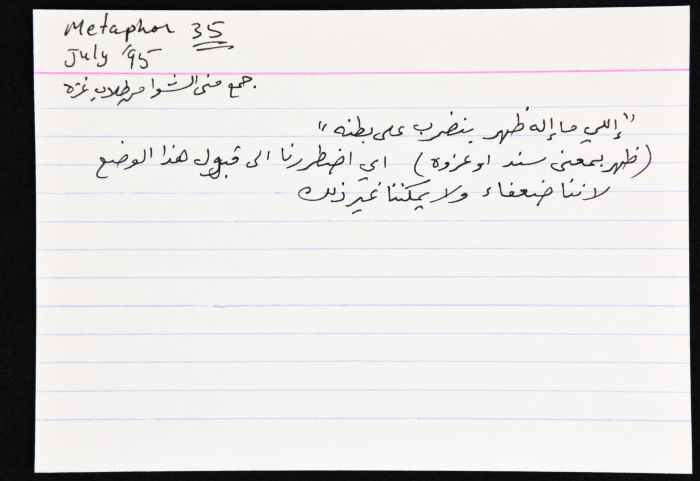 Metaphor 35
July '95
جمع منى الشوا من طلاب غزة.
"إللي ما إله ظهر بنضرب على بطنه"
(ظهر بمعنى سند او عزوة) اي اضطررنا الى قبول هذا الوضع
لاننا ضعفاء ولا يمكننا غير ذلك